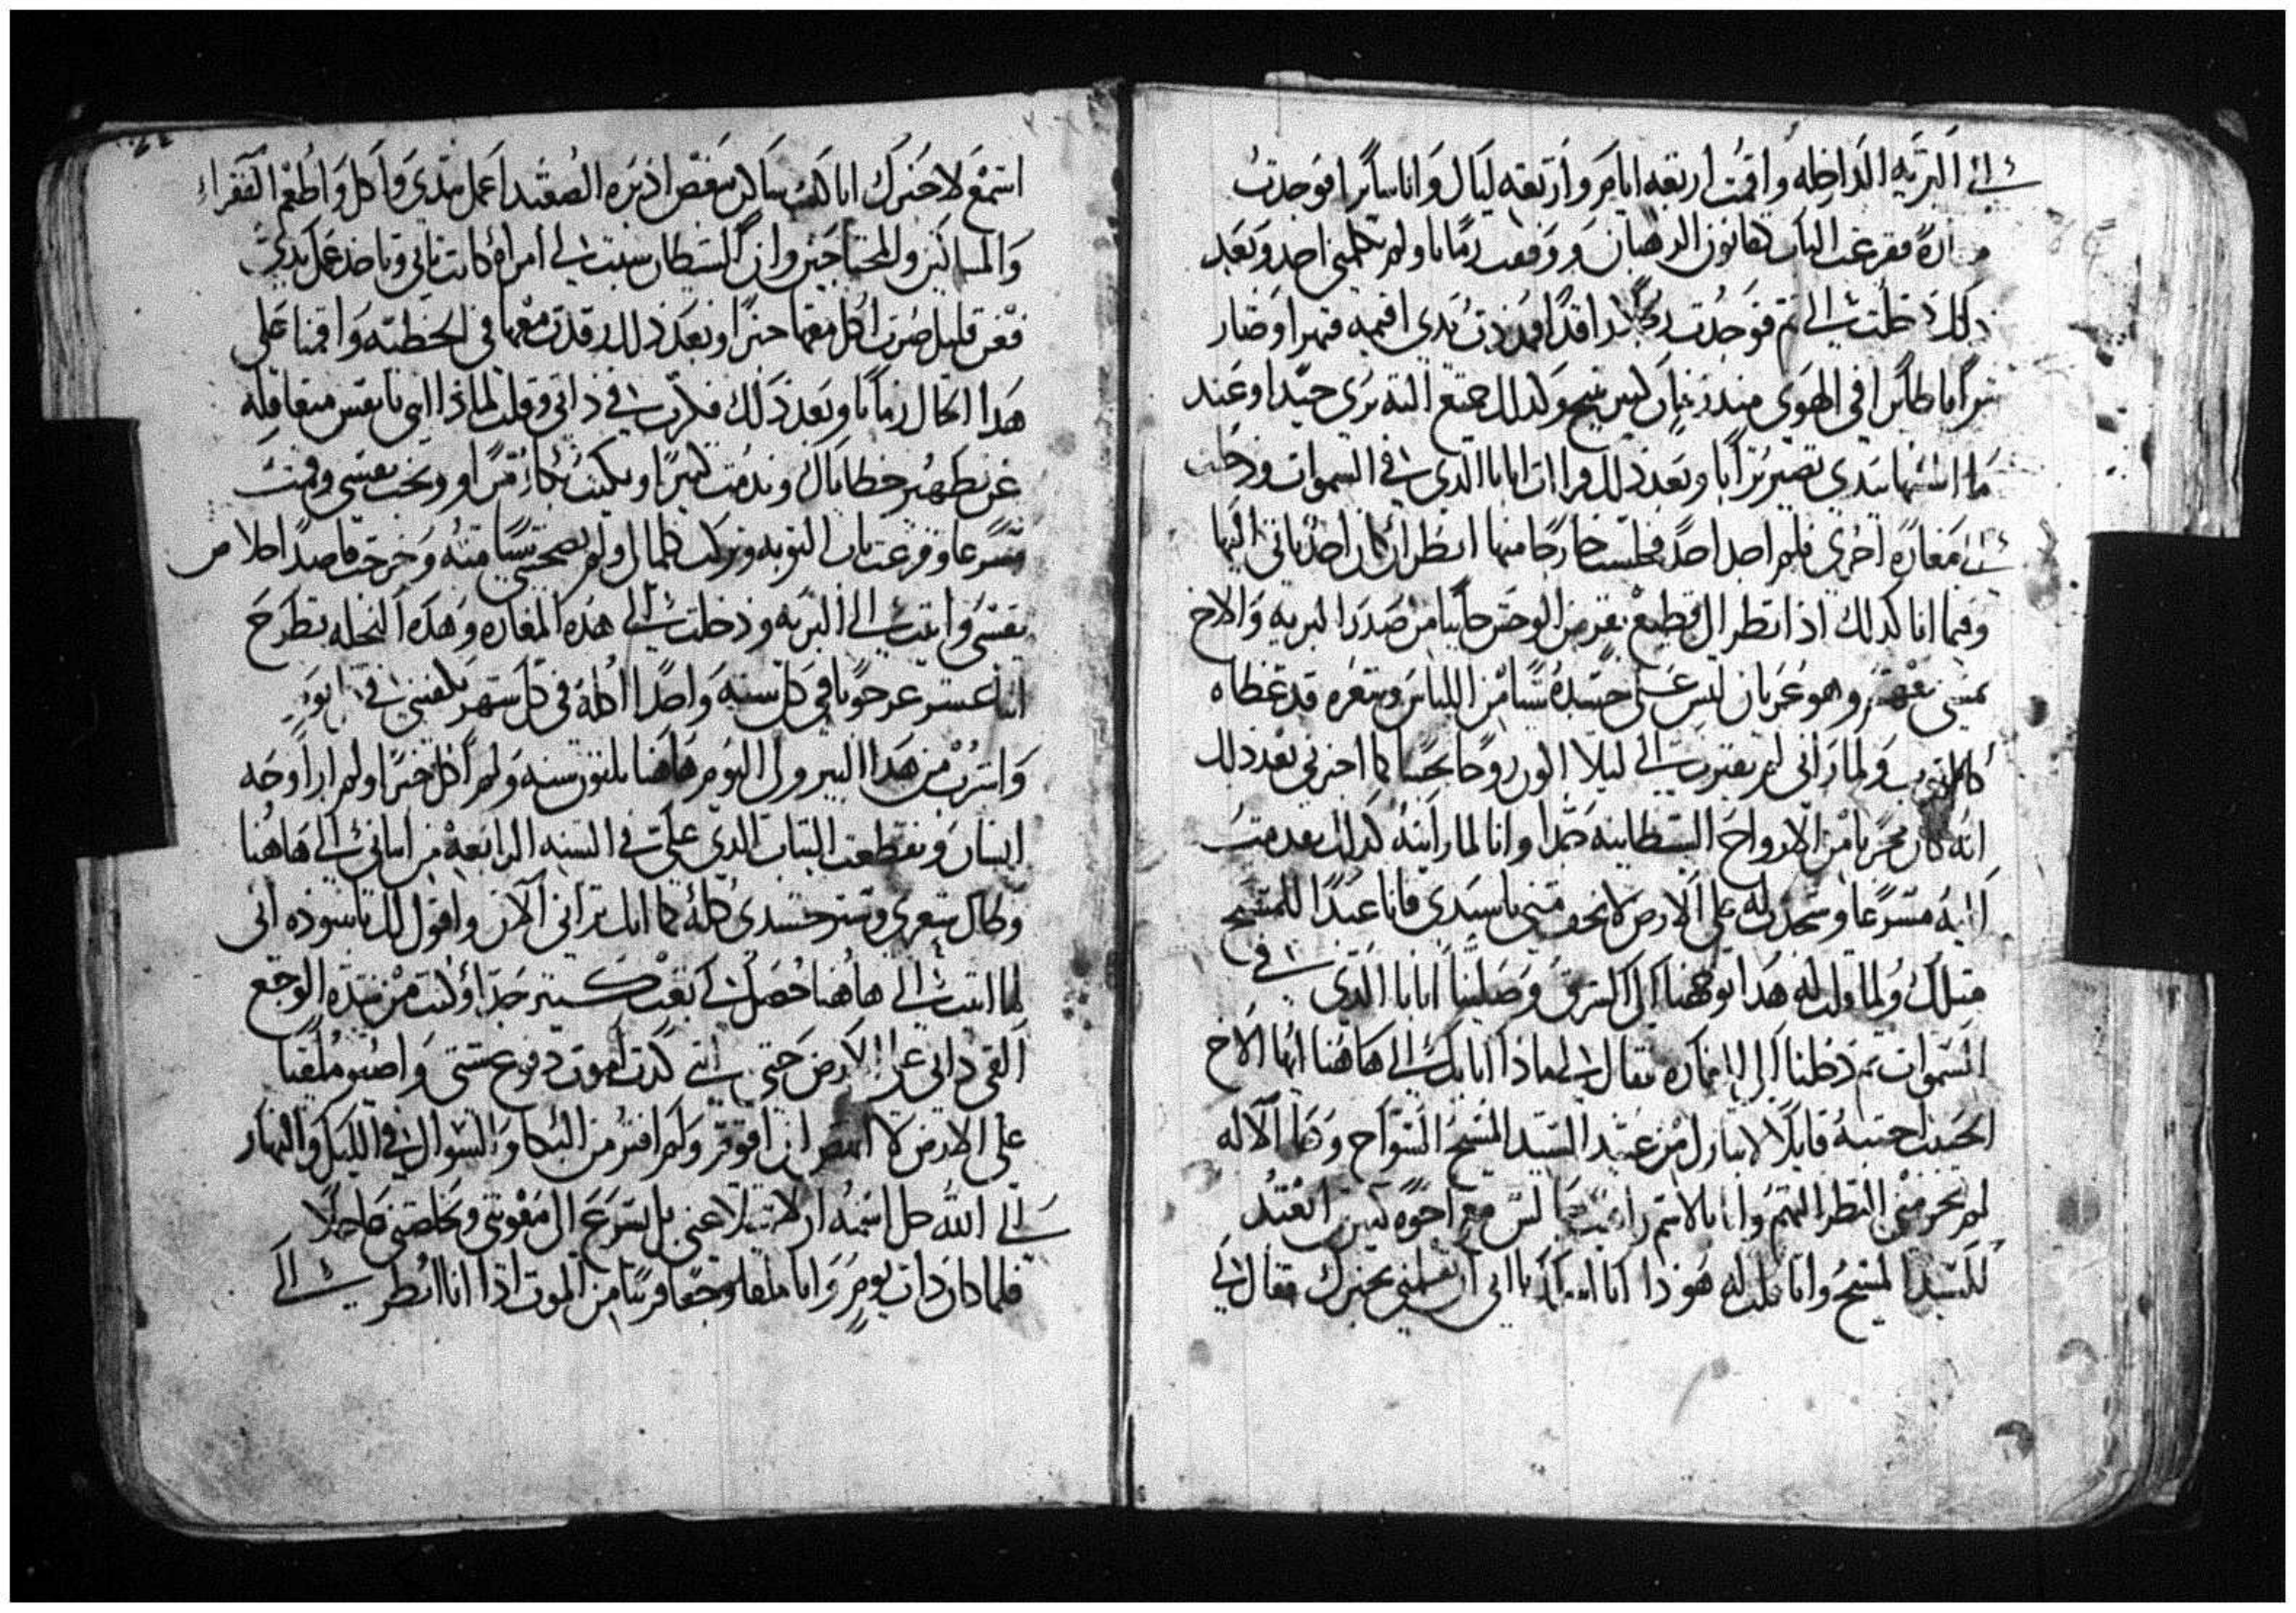 الى البريه الداخله واقمت اربعه ايام واربعه ليال وانا سايرا فوجدت
مغاره فقرعت الباب كقانون الرهبان ووقفت زمانا ولم يكلمني احد وبعد
ذلك دخلت الى ثم فوجدت رجلا راقدا فمددت يدي اقيمه
ترابا طايرا في الهوى منذ زمان كبير وكذلك جميع
ما امسكها بيدي تصير ترابا وبعد ذلك قرات ابانا الذي في السموات ودخلت
الى مغاره اخرى فلم اجد احد فجلست خارجا منها انتظر ان كان احد ياتي اليها
وفيما انا كذلك اذ انظر الى قطيع بقر من الوحش جاييا من صدر البريه والاخ
يمشي معهم وهو عريان ليس على جسده شيا من اللباس وشعره قد غطاه
كالثوب ولما راني لم يقترب الي ليلا اكون روحا نجسا كما اخبرني بعد ذلك
انه كان مجربا من الارواح الشيطانيه جدا وانا لما رايته كذلك تقدمت
اليه مسرعا وسجدت له على الارض لا تخف مني يا سيدي فانا عبدا للمسيح
مثلك ولما قلت له هذا توجهنا الى الشرق وصلينا ابانا الذي في
السموات ثم دخلنا الى المغاره فقال لي لماذا اتى بك الى هاهنا ايها الاخ
الحبيب اجبته قايلا لابارك من عبيد السيد المسيح السواح وهذا الاله
لم يحرمني النظر اليهم وانا بالاسم راهب جالس مع اخوه كثير نعبد
للسيد المسيح وانا قلت له هوذا انا اسالك يا ابي ان تعلمني بخبرك فقال لي
استمع لاخبرك انا كنت ساكن بعض اديره الصعيد اعمل بيدي واكل واطعم الفقراء
والمساكين والمحتاجين وان الشيطان سبب لي امراه كانت تاتي وتاخذ عمل يدي
فعن قليل صرت اكل معها خبزا وبعد ذلك رقدت معها في الخطيه واقمنا على
هذا الحال زمانا وبعد ذلك فكرت في ذاتي وقلت لماذا انتي يا نفس متغافله
عن تطهير خطاياك وندمت كثيرا وبكيت بكاء مرا ووبخت نفسي وقمت
مسرعا وقرعت باب التوبه وتركت كلما لي ولم يصحبني شيا منه وخرجت قاصدا خلاص
نفسي واتيت الى البريه ودخلت الى هذه المغاره وهذه النخله تطرح
اثنا عشر عرجونا في كل سنه واحدا اكله في كل شهر يكفيني
واشرب من هذا البير ولي اليوم هاهنا ثلثون سنه ولم اكل خبزا ولم ارا وجه
انسان وتقطعت الثياب الذي علي في السنه الرابعه من اتياني الى هاهنا
وطال شعري وستر جسدي كله كما انك تراني الان واقول لك ياسوده اني
لما اتيت الى هاهنا حصل لي تعب كثير جدا وكنت من شده الوجع
القي ذاتي على الارض حتى اني كدت اموت دفوع شتى واصير ملقيا
على الارض لا اقدر ان اقوم ولم افتر من البكا والسوال في الليل والنهار
الى الله جل اسمه ان لا يتخلا عني بل يسرع الى معونتي ويخلصني عاجلا
فلما كان ذات يوم وانا ملقا وجعا قريبا من الموت اذا انا انظر الى